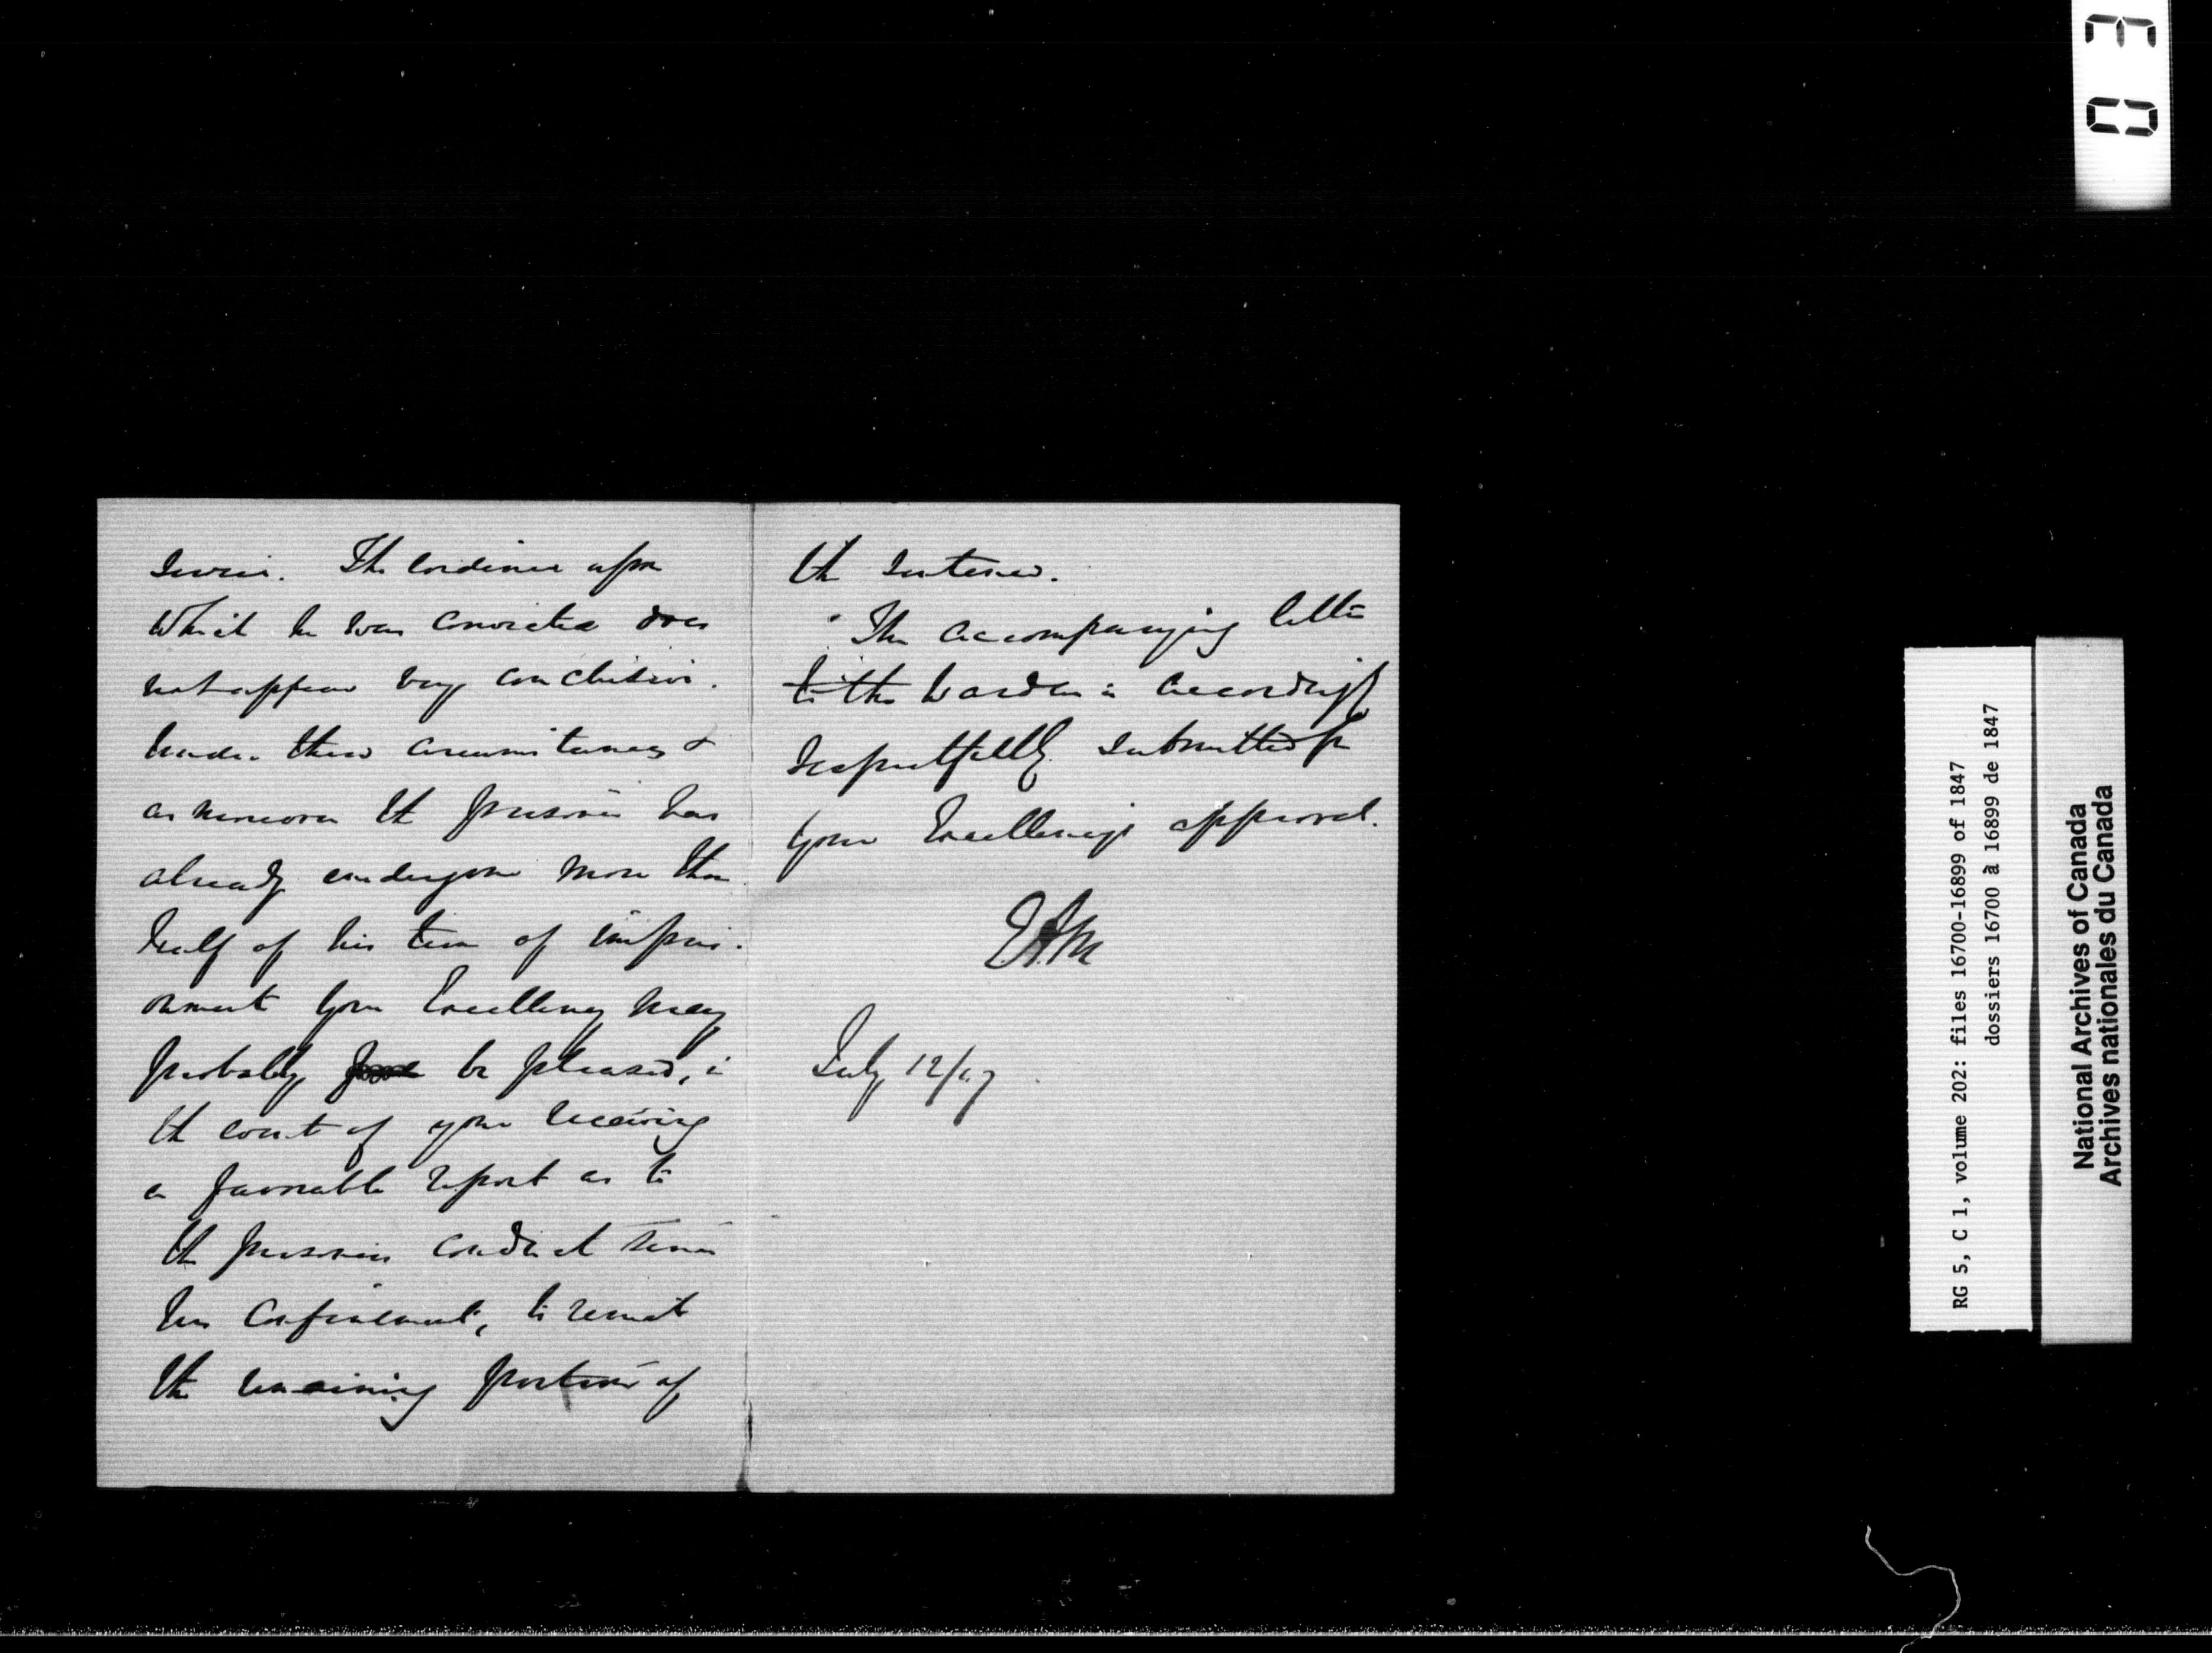 severe. The evidence upon
which he was convicted does
not appear very conclusive.
Under these circumstances &
as moreover the prisoner has
already undergone more than
half of his term of impris-
onment Your Excellency may
probably be pleased, in
the event of your receiving
a favorable report as to
the prisoners conduct since
his confinement, to remit
the remaining portion of
the sentence.
The accompanying letter
to the Warden is accordingly
respectfully submitted for
Your Excellency's approval.
E.A.M
July 12/47
03
RG 5, C 1, volume 202: files 16700-16899 of 1847
dossiers 16700 à 16899 de 1847
National Archives of Canada
Archives nationales du Canada